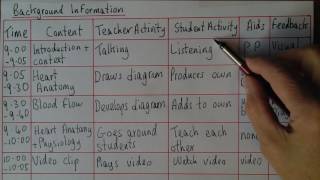 Background Information
Time Content Teacher Activity Student Activity Aids Feedback
9.00 Introduction + Talking Listening P.P. Visual
-9.05 context
9.05 Heart Draws diagram Produces own
-9.30 Anatomy
9.30 Blood flow Develops diagram Adds to own
-9.40
9.40 Heart Anatomy Goes around Teach each none
-10.00 + Physiology students other
10.00 Video clip Plays video Watch video
-10.05